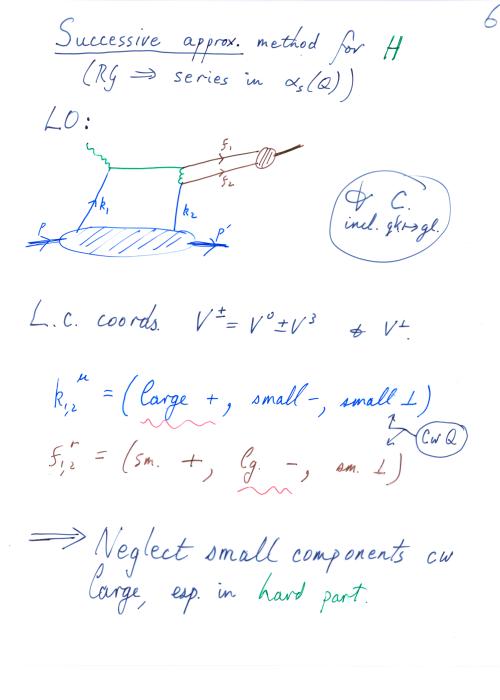 6
Successive approx. method for H
(RG ⇒ series in αs(Q))
LO:
f₁
f₂
k₁
k₂
P
P'
C.
incl. gk↦gl.
L.C. coords. V± = V⁰ ± V³ & V⊥.
k₁,₂^μ = (large +, small −, small ⊥)
cw Q
f₁,₂^μ = (sm. +, lg. −, sm. ⊥)
⇒ Neglect small components cw
large, esp. in hard part.